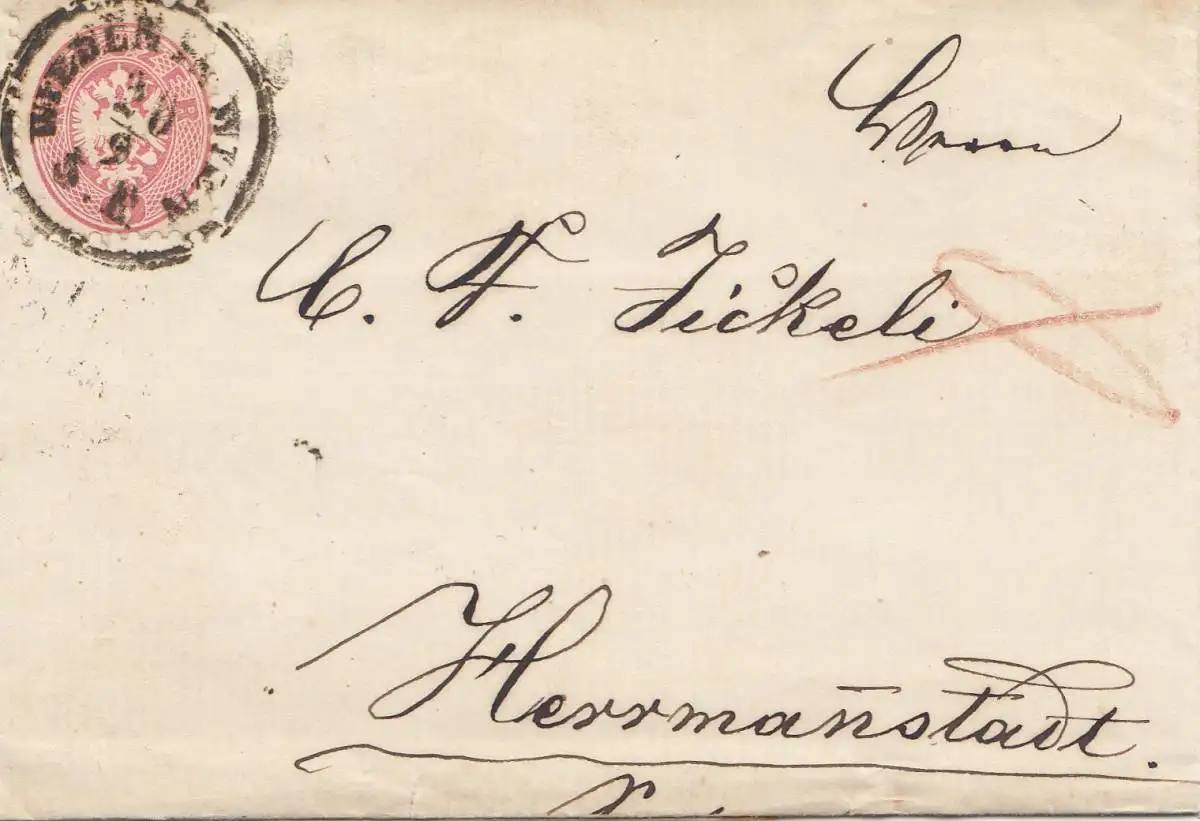 WIEDEN IN WIEN
Herrn
C. F. Jickeli
Herrmañstadt.